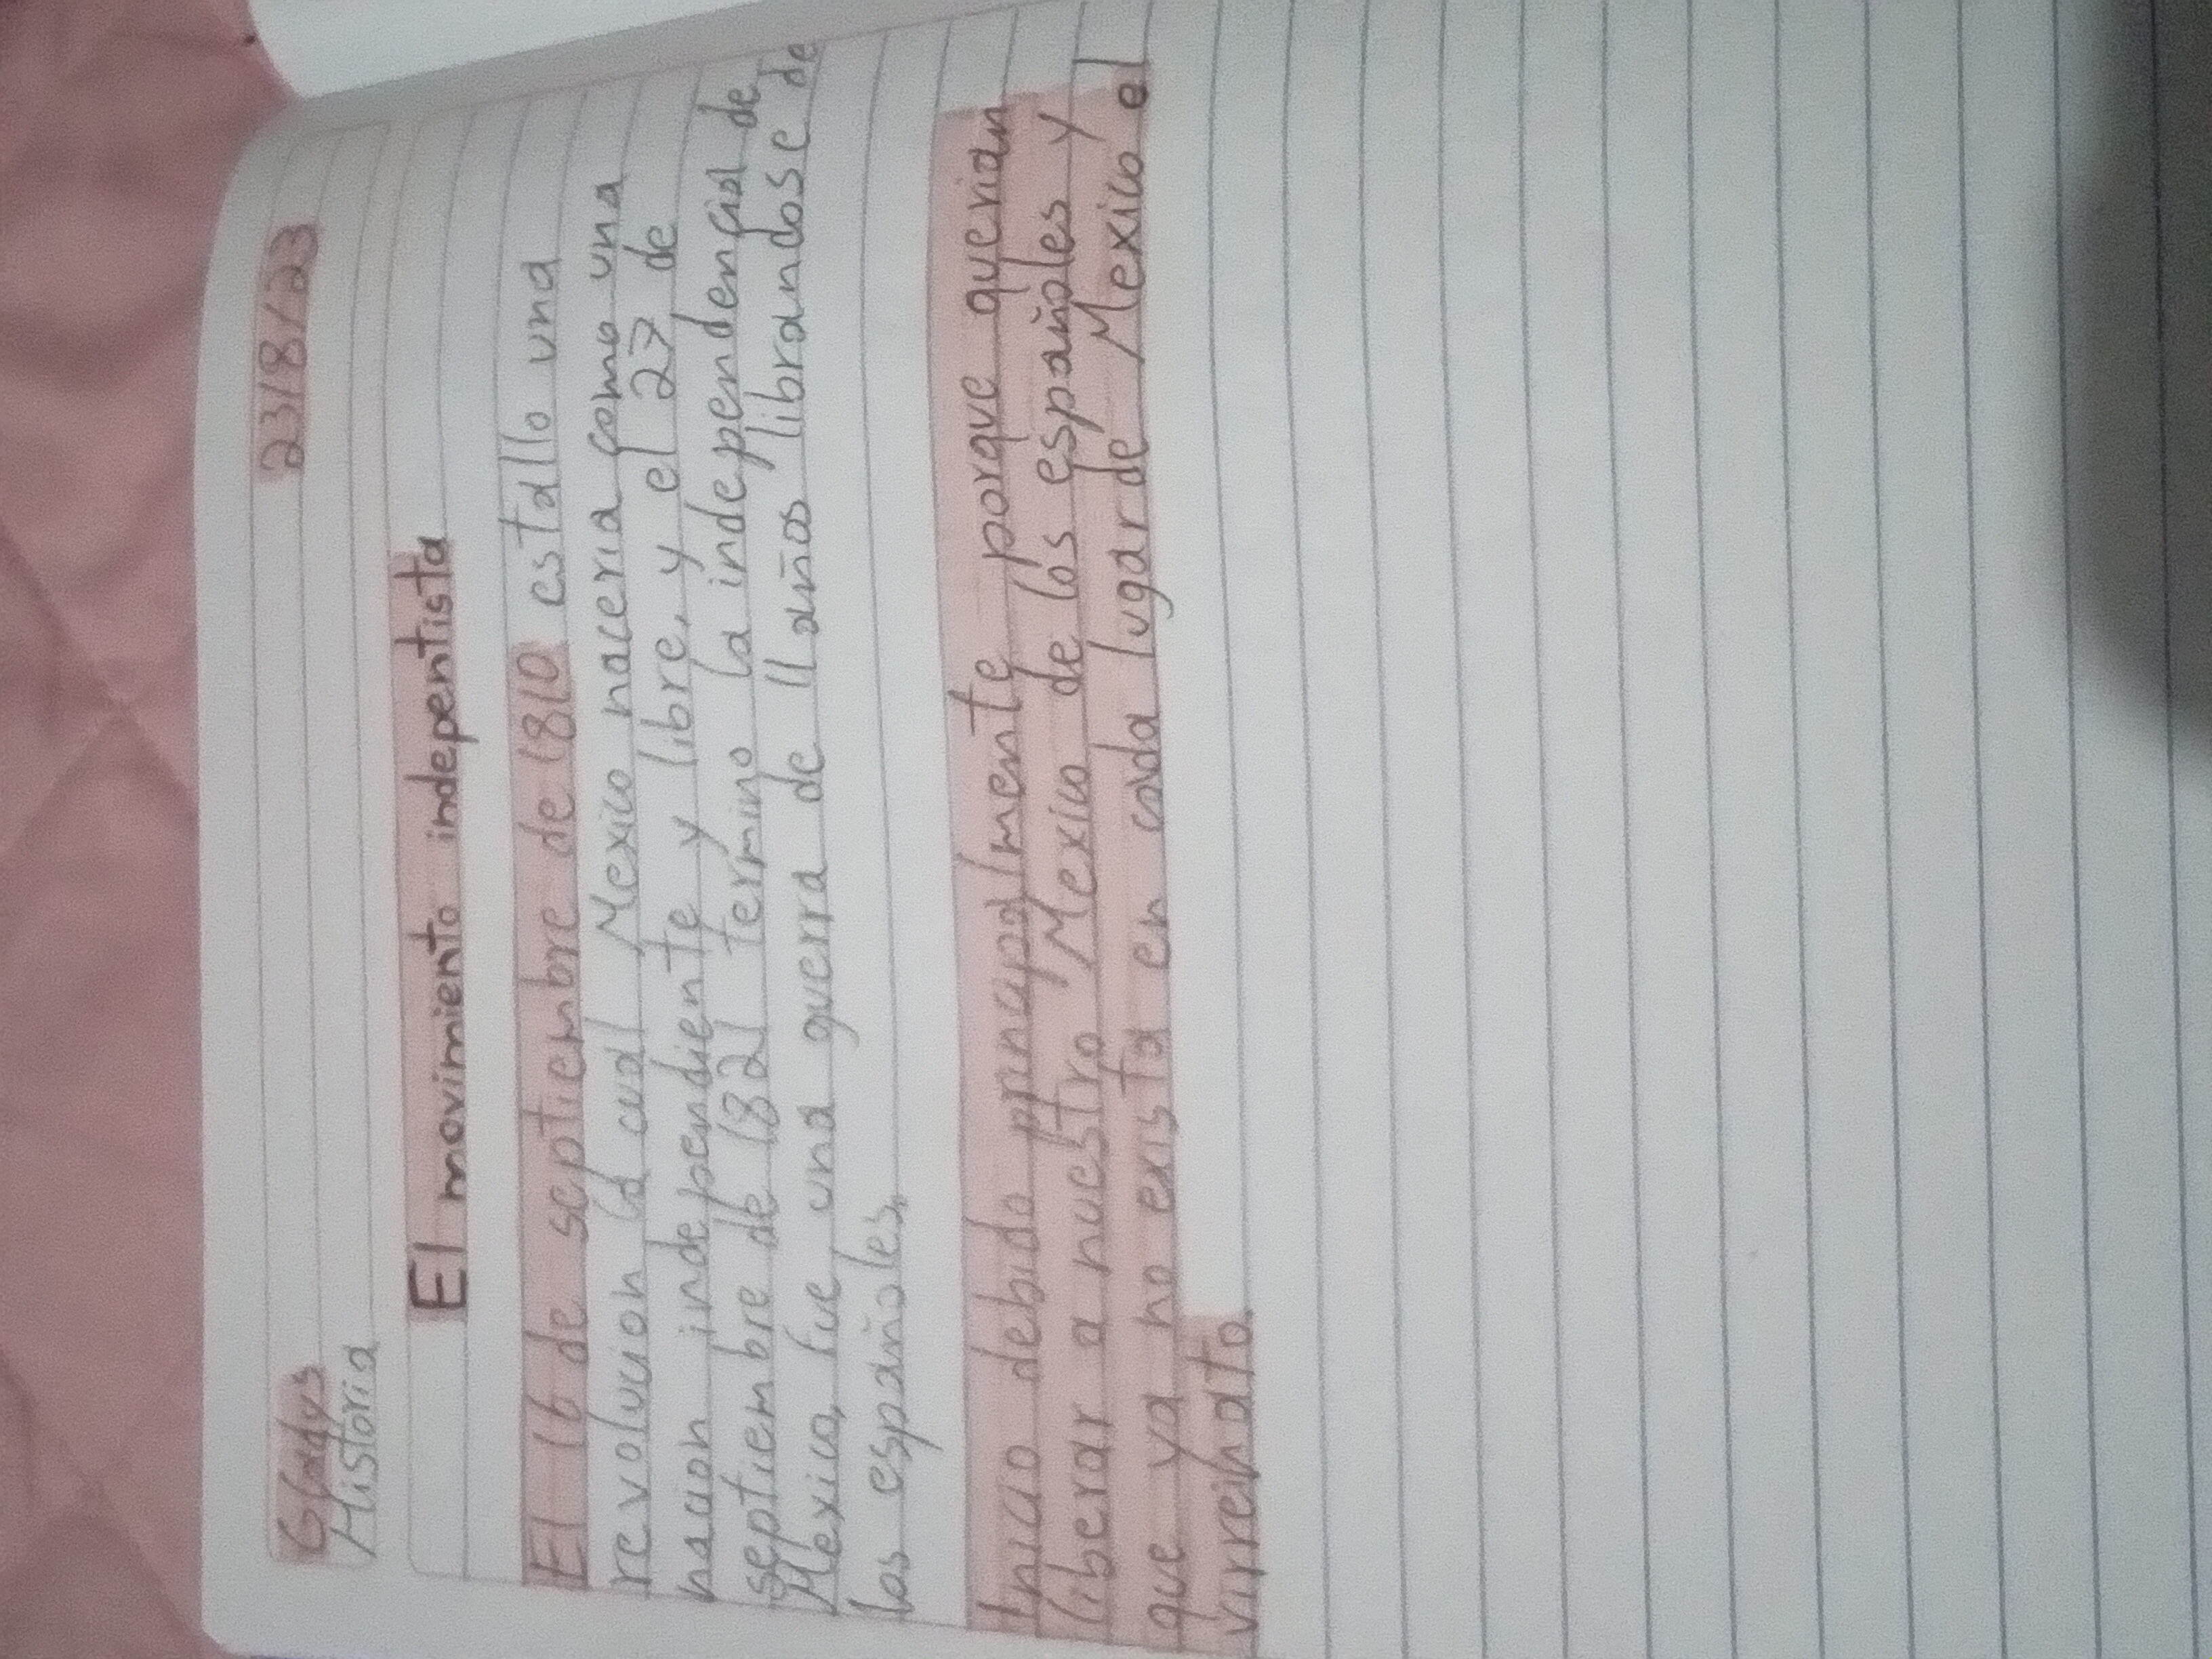 Gladys 23/8/23
Historia
El movimiento indepentista
El 16 de septiembre de 1810 estallo una
revolucion la cual Mexico naceria como una
nacion independiente y libre, y el 27 de
septiembre de 1821 termino la independencia de
Mexico, fue una guerra de 11 años librandose de
los españoles.
Inicio debido principalmente porque querian
liberar a nuestro Mexico de los españoles y
que ya no exista en cada lugar de Mexico el
virreinato.